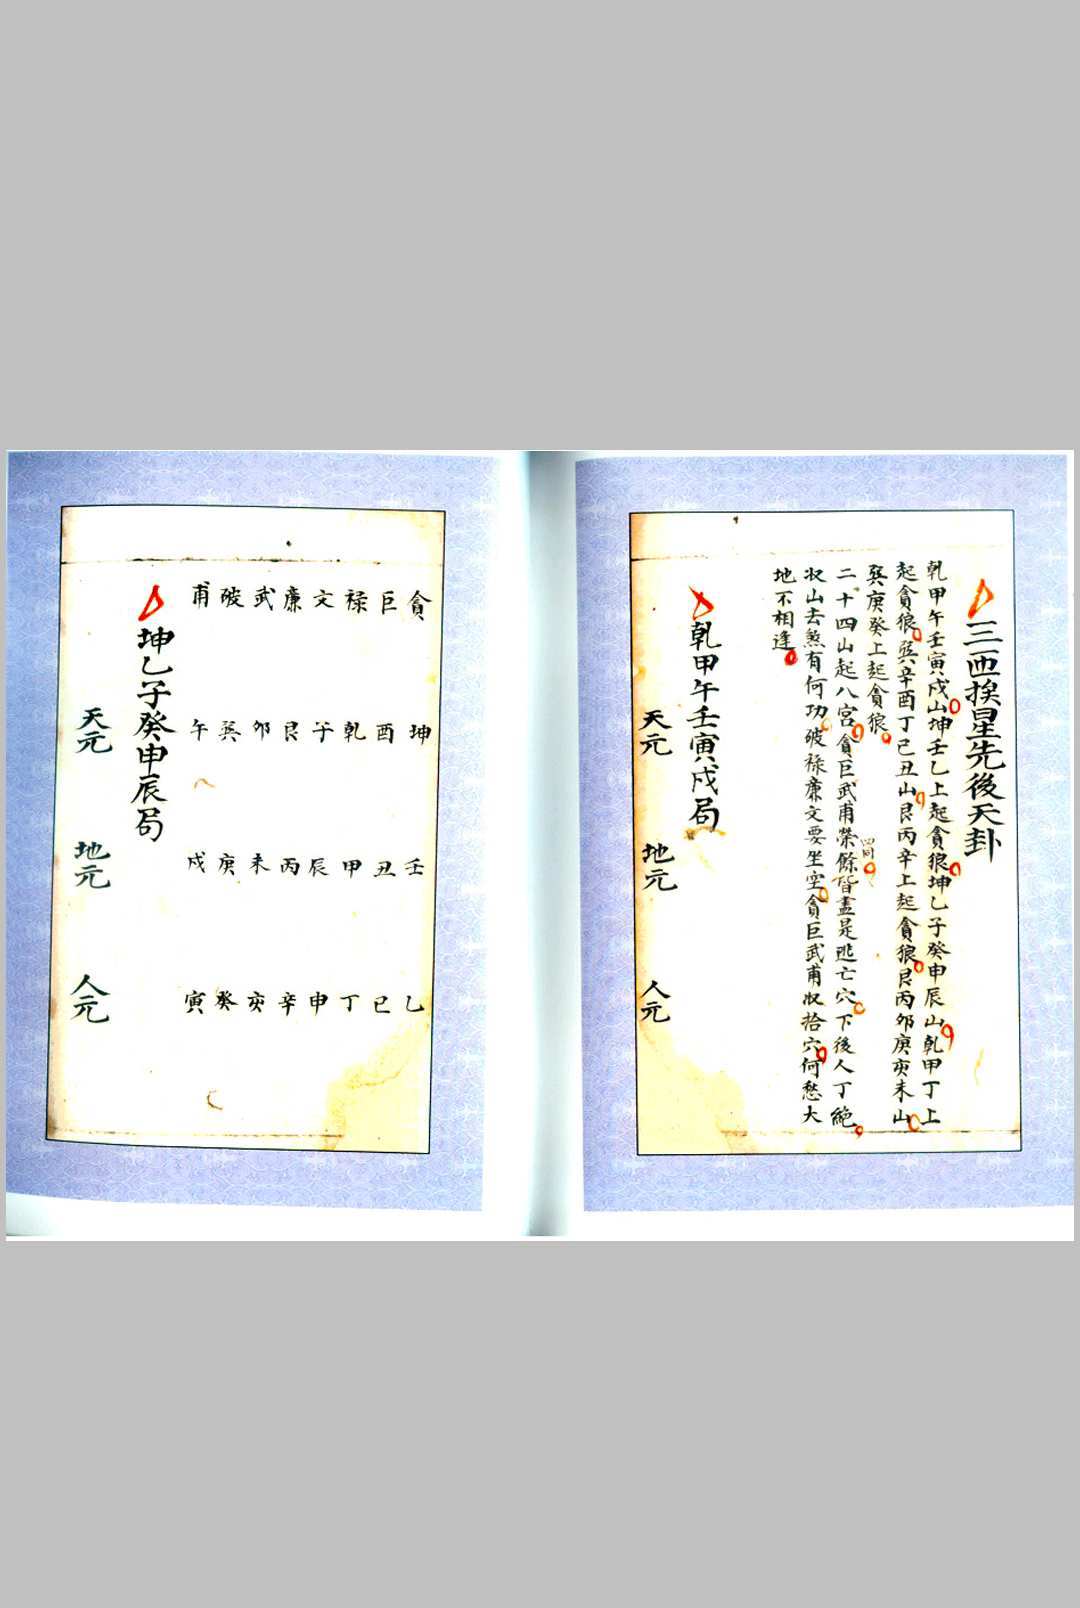 三匝挨星先後天卦
乾甲午壬寅戌山坤壬乙上起貪狼坤乙子癸申辰山乾甲丁上
起貪狼巽辛酉丁巳丑山艮丙辛上起貪狼艮丙卯庚亥未山
巽庚癸上起貪狼
二十四山起八宮貪巨武甫榮餘皆盡是逃亡穴下後人丁絕
収山去煞有何功破禄廉文要坐空貪巨武甫收拾穴何愁大
地不相逢
乾甲午壬寅戌局
天元 地元 人元
貪巨禄文廉武破甫
坤酉乾子艮卯巽午
壬丑甲辰丙未庚戌
乙巳丁申辛亥癸寅
坤乙子癸申辰局
天元 地元 人元